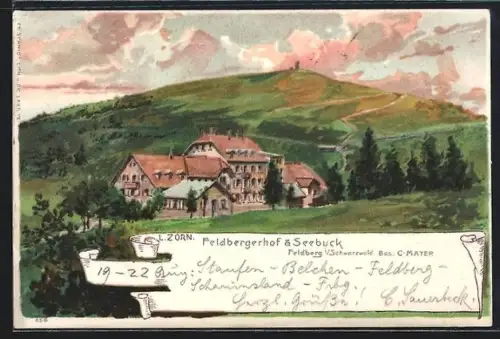 L. ZORN.
Feldbergerhof & Seebuck
Feldberg i/Schwarzwald Bes. C. MAYER
19-22 Aug: Staufen - Belchen - Feldberg -
Schauinsland - Frbg.
Herzl. Grüße! C. Sauerbeck.